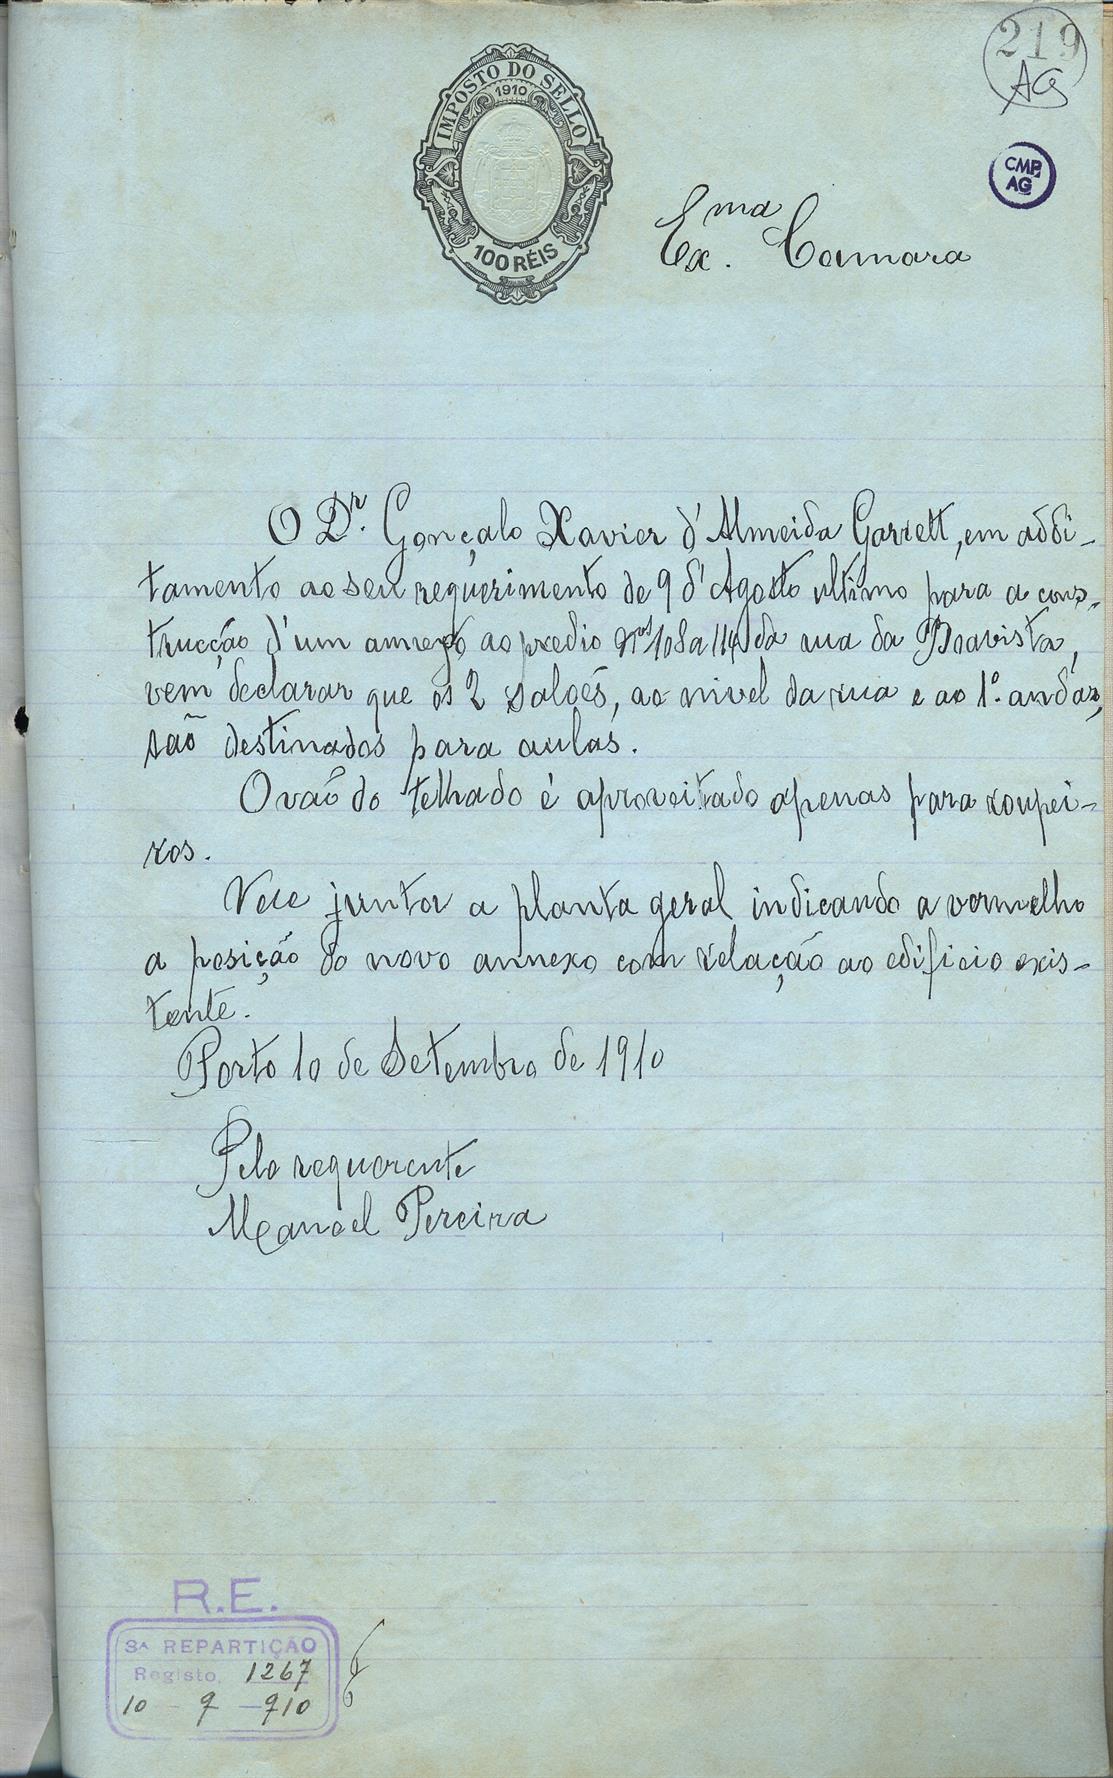 219
AG
CMP
AG
IMPOSTO DO SELLO
1910
100 RÉIS
Ex.ma Camara
O Dr. Gonçalo Xavier d'Almeida Garrett, em addi-
tamento ao seu requerimento de 9 d'Agosto ultimo para a cons-
trucção d'um annexo ao predio nos 108 a 114 da rua da Boavista,
vem declarar que os 2 salões, ao nivel da rua e ao 1º. andar,
são destinados para aulas.
O vão do telhado é aproveitado apenas para roupei-
ros.
Vem juntar a planta geral indicando a vermelho
a posição do novo annexo com relação ao edificio exis-
tente.
Porto 10 de Setembro de 1910
Pelo requerente
Manoel Pereira
R.E.
3ª REPARTIÇÃO
Registo 1267
10 - 9 - 910